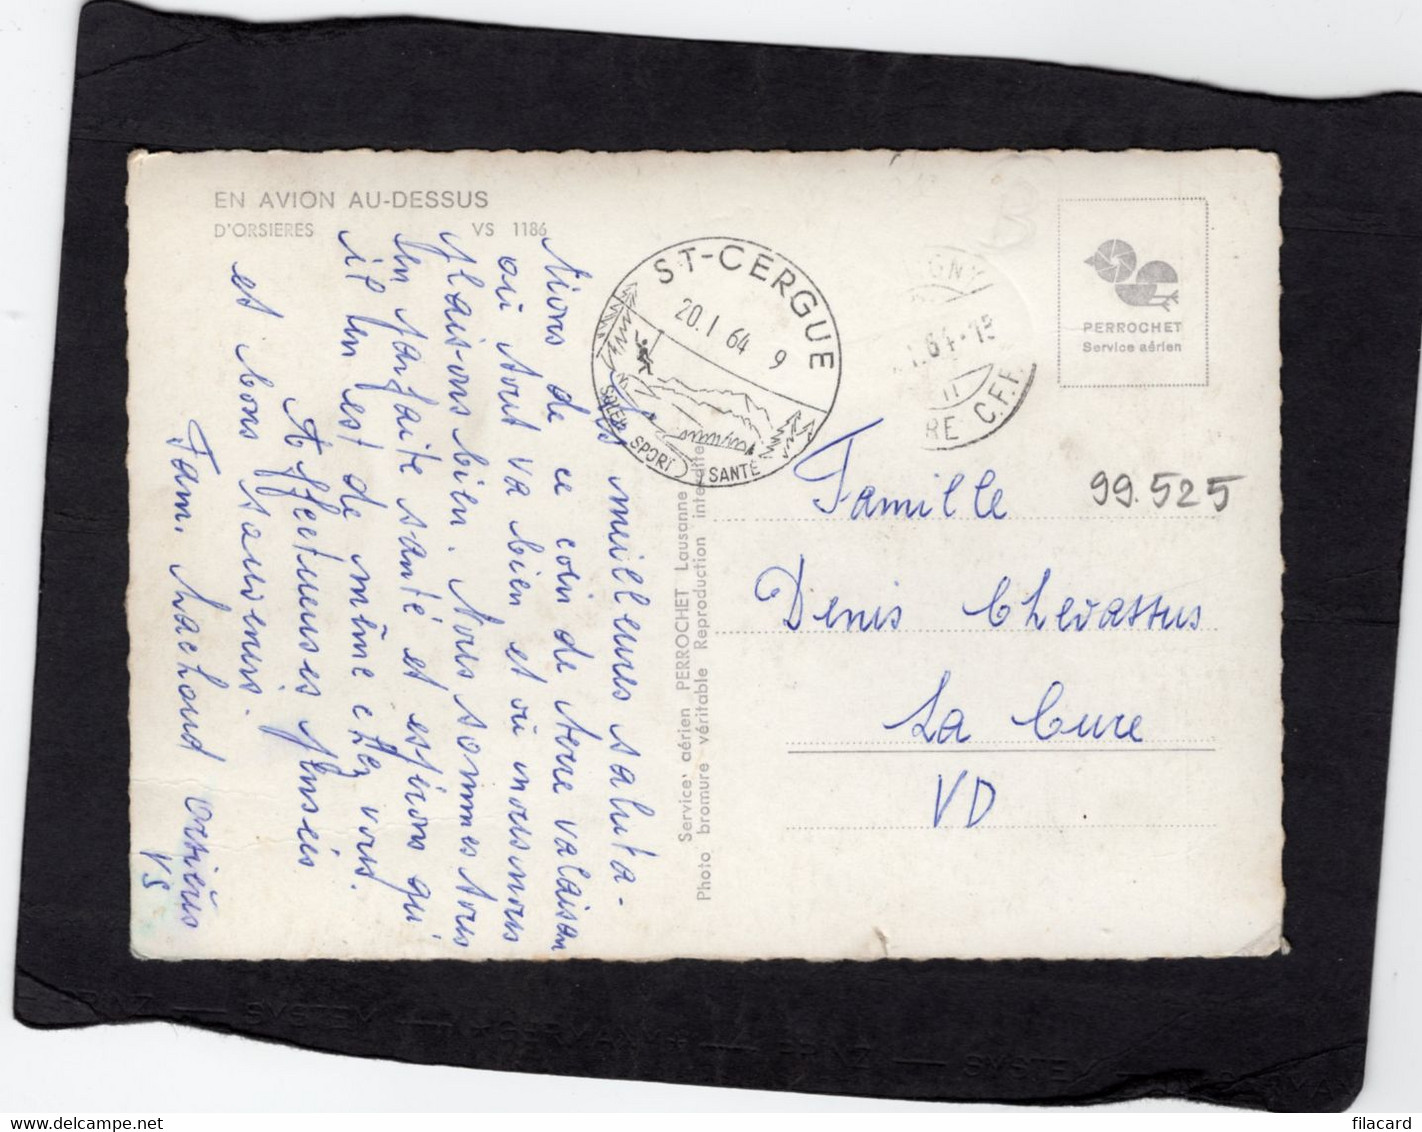 EN AVION AU-DESSUS
D'ORSIERES VS 1186
Nos meilleures saluta-
tions de ce coin de terre valaisan
où tout va bien et où nous nous
plaisons bien. Nous sommes tous
en parfaite santé et espérons qu
il en est de même chez vous.
Affectueuses pensées
et bons souvenirs.
Fam. Orsières
VS
ST-CERGUE
20.I 64 9
SOLEIL SPORT SANTÉ
GNY
64-15
RE C.F.F.
PERROCHET
Service aérien
Service aérien PERROCHET Lausanne
Photo bromure véritable Reproduction interdite
Famille 99.525
Denis Chevassus
La Cure
VD
PRINZ — SYSTEM — GERMANY — PRINZ — SYSTEM
www.delcampe.net
filacard